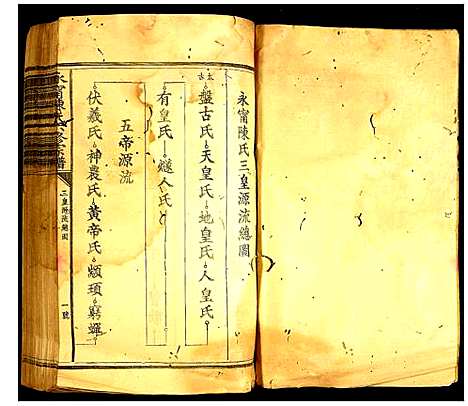 永甯陳氏三皇源流總圖
太古
盤古氏 天皇氏 地皇氏 人皇氏
有皇氏 燧人氏
五帝源流
伏羲氏 神農氏 黃帝氏 顓頊 窮蟬
三皇源流總圖
一號